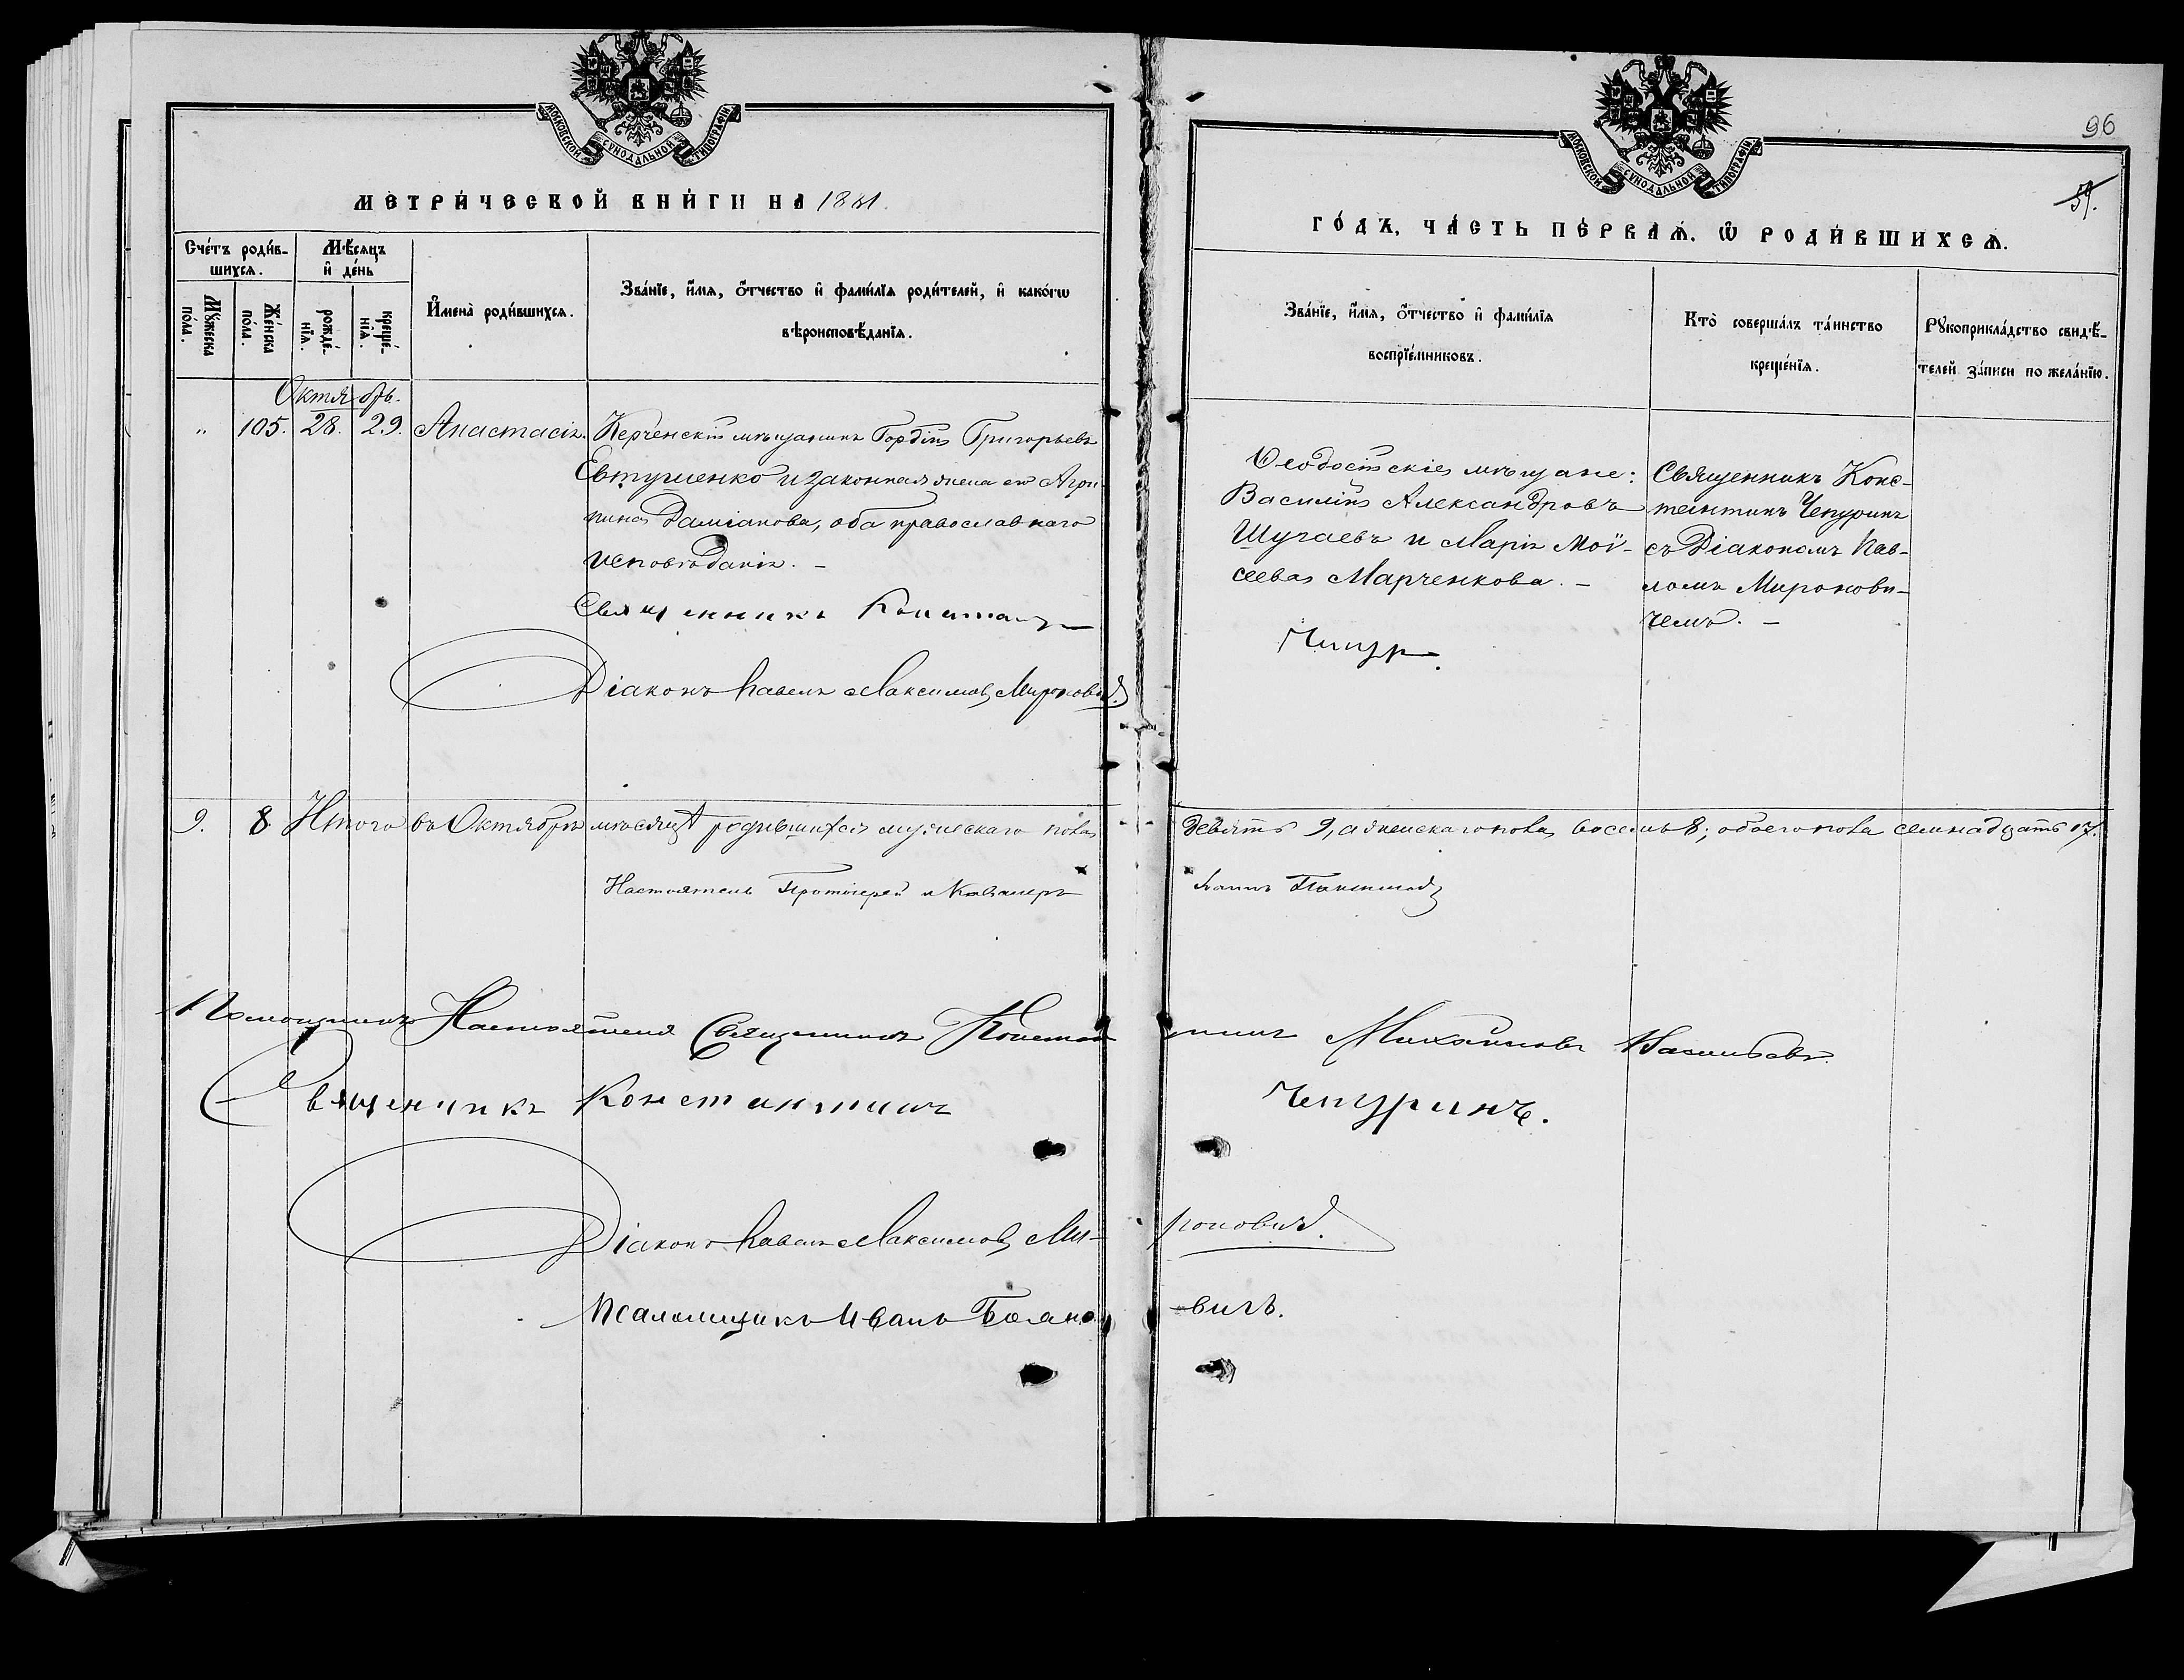 МОСКОВСКОЙ СѴНОДАЛЬНОЙ ТИПОГРАФІИ
МЕТРИ́ЧЕСКОЙ КНИ́ГИ НА 1881
Сче́тъ роди́в-
шихся.
Мꙋ́жеска
по́ла.
Же́нска
по́ла.
Мѣ́сяцъ
и де́нь
рожде́-
нїя.
креще́-
нїя.
Имена̀ роди́вшихся.
Зва́нїе, и́мя, о́тчество и фами́лїя роди́телей, и како́гѡ
вѣроисповѣ́данїя.
Октябрь.
" 105. 28. 29. Анастасія. Керченскій мѣщанинъ Гордій Григорьевъ
Евтушенко и законная жена его Агри-
пина Даміанова, оба православнаго
исповѣданія. –
Священникъ Констант
Діаконъ Павелъ Максимов Миронович
9. 8 Итого въ Октябрѣ мѣсяцѣ родившихся мужескаго пола
Настоятель Протоіерей и Кавалеръ
Помощникъ Настоятеля Священникъ Констан
Священникъ Константинъ
Діаконъ Павелъ Максимов Ми-
Псаломщикъ Иванъ Бояно
96
59.
МОСКОВСКОЙ СѴНОДАЛЬНОЙ ТИПОГРАФІИ
ГО́ДЪ, ЧА́СТЬ ПЕ́РВАѦ. Ѡ҆ РОДИ́ВШИХСѦ.
Зва́нїе, и́мя, о́тчество и фами́лїя
воспрїе́мниковъ.
Кто̀ соверша́лъ та́инство
креще́нїя.
Рꙋкоприкла́дство свидѣ́-
телей за́писи по жела́нїю.
Ѳеодосійскіе мѣщане:
Василій Александровъ
Шучаевъ и Марія Мої-
сеева Марченкова. –
Священникъ Конс-
тантинъ Чепуринъ
съ Діакономъ Пав-
ломъ Миронови-
чемъ. –
Чепур
девять 9, а женскаго пола восемь 8; обоего пола семнадцать 17.
Іоаннъ
тинъ Михайловъ Васильевъ.
Чепуринъ.
ронович.
-вичъ.